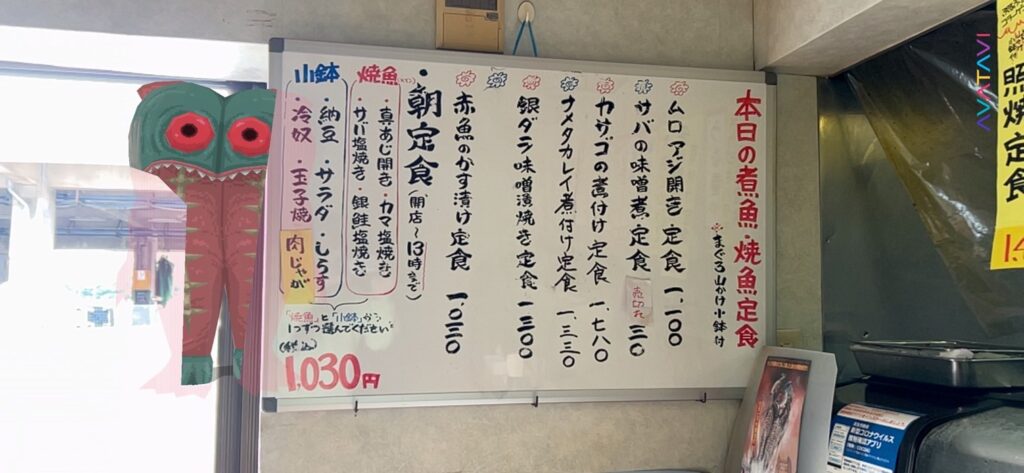 本日の煮魚・焼魚定食
※まぐろ山かけ小鉢付
ムロアジ開き定食 一、一〇〇
サバの味噌煮定食
売切れ
カサゴの煮付け定食 一、七八〇
ナメタカレイ煮付け定食 一、三三〇
銀ダラ味噌漬焼き定食 一、三〇〇
赤魚のかす漬け定食 一、〇三〇
・朝定食(開店〜13時まで)
焼魚
・真あじ開き・カマ塩焼き
・サバ塩焼き・銀鮭塩焼き
小鉢
・納豆・サラダ・しらす
・冷奴・玉子焼
肉じゃが
「焼魚」と「小鉢」から
1つずつ選んでください
(税込)
1,030円
照焼定食
AVATAVI
新型コロナウイルス
接触確認アプリ